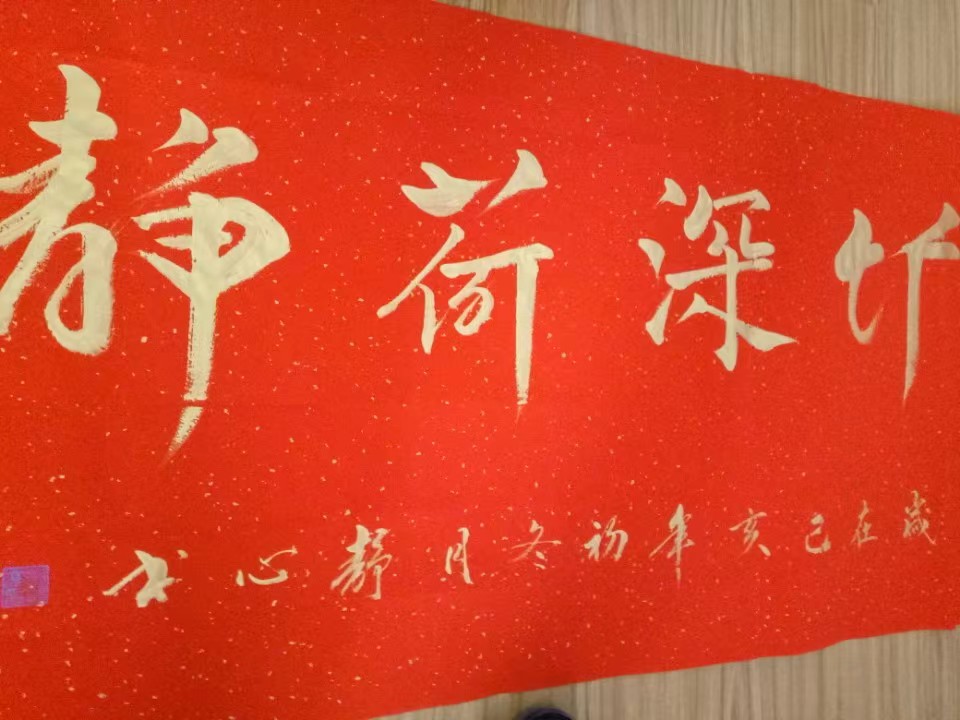 竹深荷静
岁在己亥年初冬月静心书